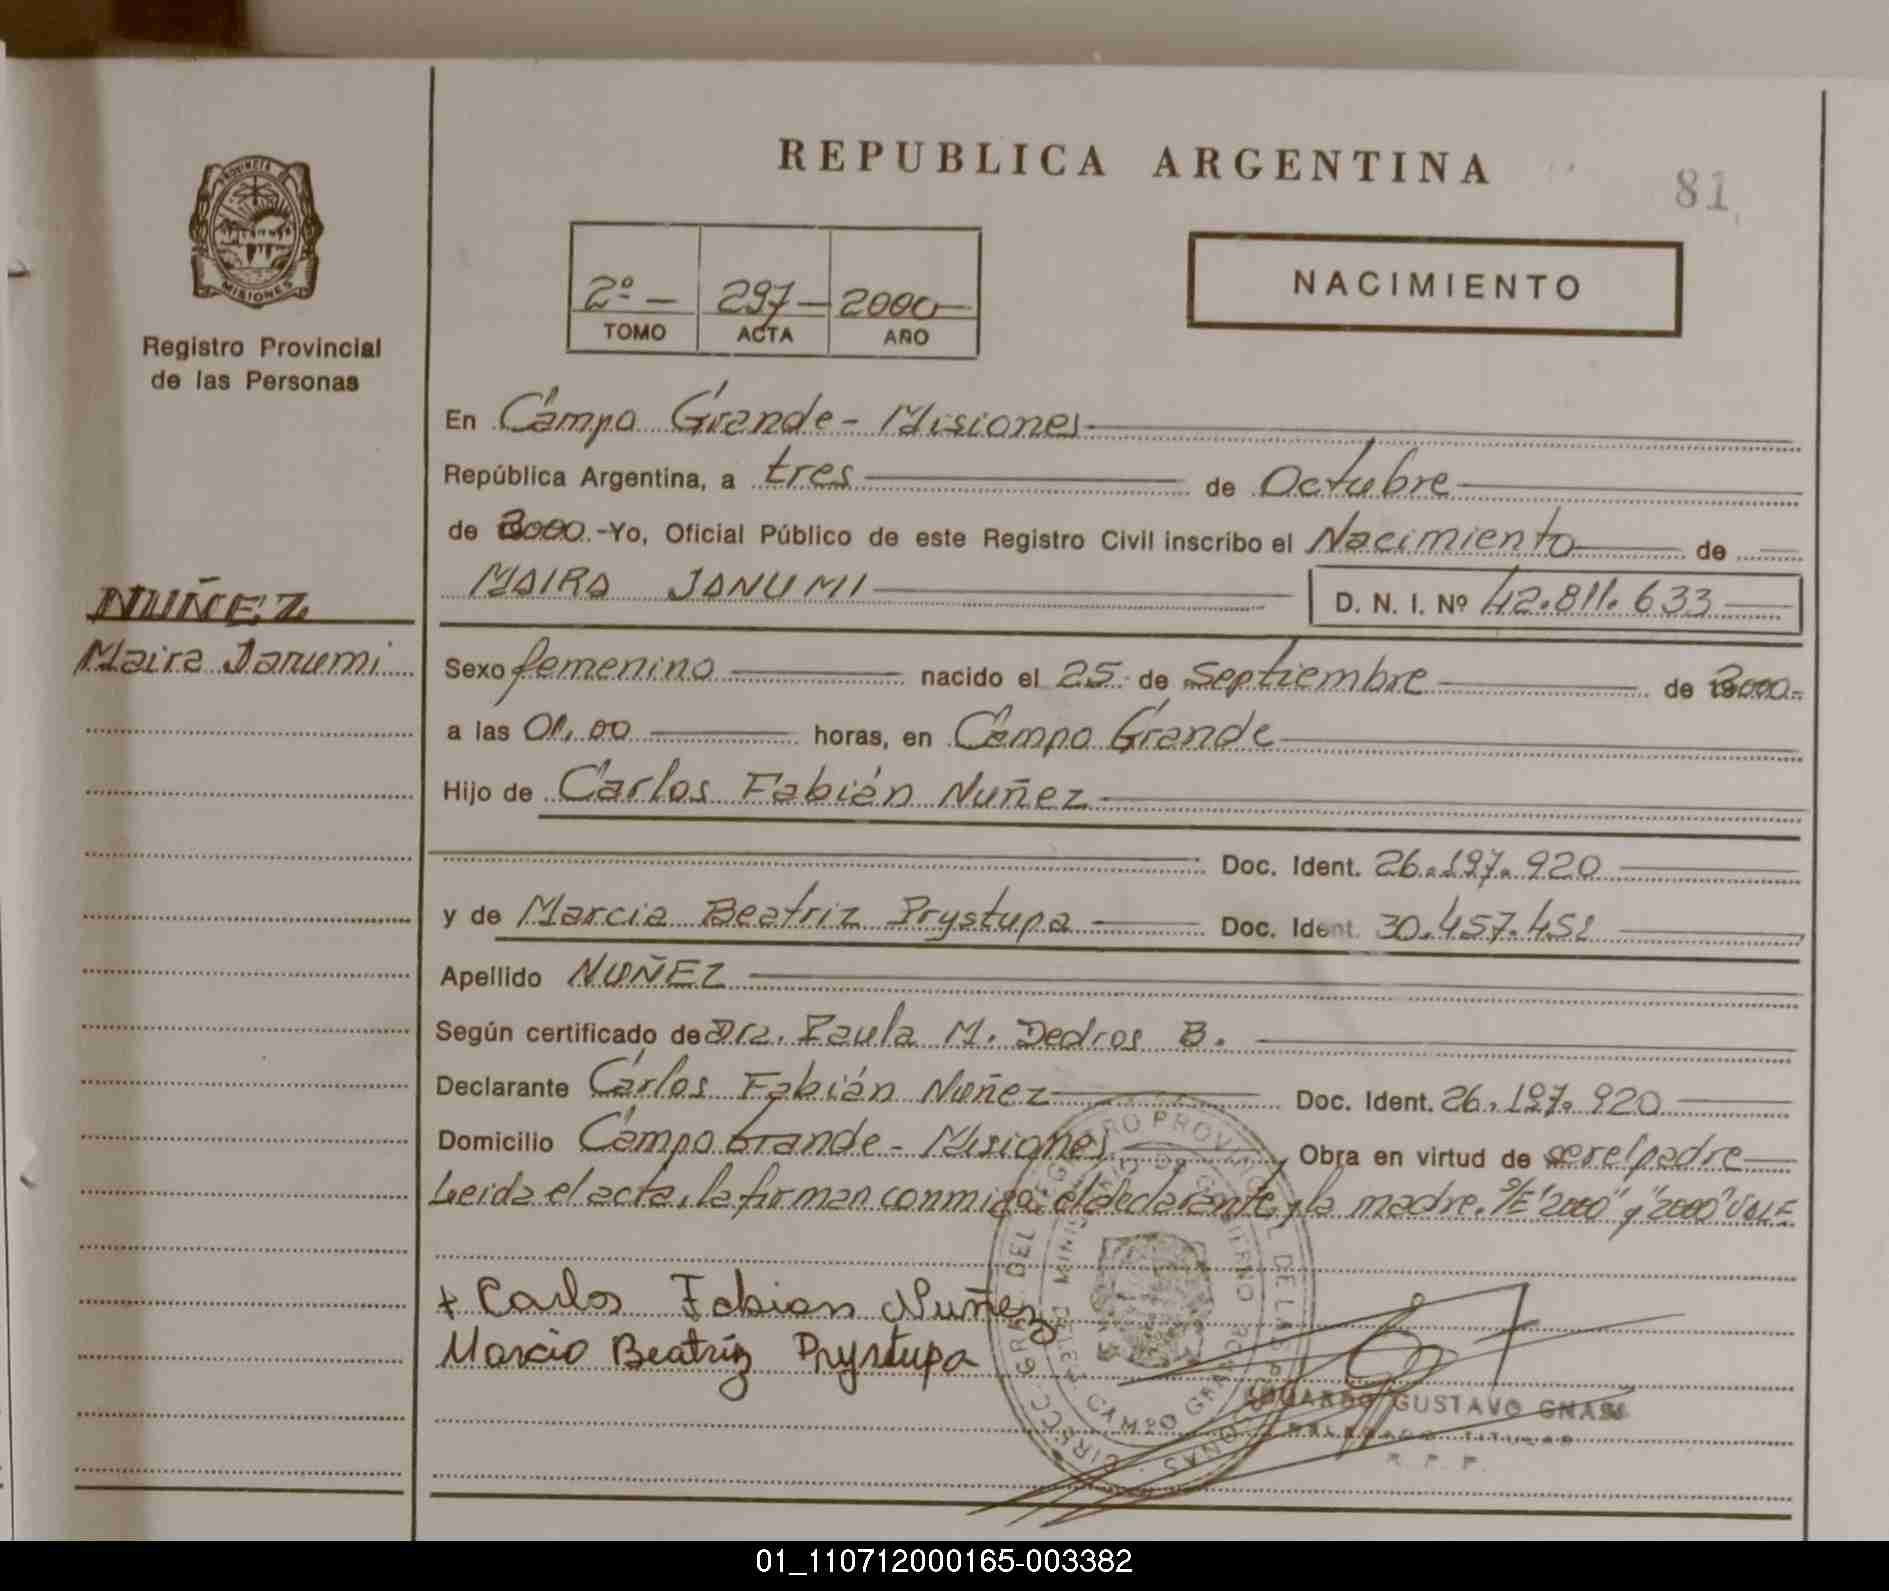 REPUBLICA ARGENTINA
81
PROVINCIA DE
MISIONES
Registro Provincial
de las Personas
2º - 297 - 2000
TOMO ACTA AÑO
NACIMIENTO
En Campo Grande - Misiones
República Argentina, a tres de Octubre
de 2000.- Yo, Oficial Público de este Registro Civil inscribo el Nacimiento de
MAIRA JANUMI D. N. I. Nº 42.811.633
NUÑEZ
Maira Janumi
Sexo femenino nacido el 25 de Septiembre de 2000.-
a las 01,00 horas, en Campo Grande
Hijo de Carlos Fabián Nuñez
Doc. Ident. 26.197.920
y de Marcia Beatriz Prystupa Doc. Ident. 30.457.452
Apellido NUÑEZ
Según certificado de Dra. Paula M. Dedros B.
Declarante Carlos Fabián Nuñez Doc. Ident. 26.197.920
Domicilio Campo Grande - Misiones Obra en virtud de ser el padre
Leida el acta, la firman conmigo el declarante y la madre. S/E "2000" y "2000" VALE
+ Carlos Fabian Nuñez
Marcia Beatriz Prystupa
EDUARDO GUSTAVO GNASS
DELEGADO TITULAR
R. P. P.
01_110712000165-003382